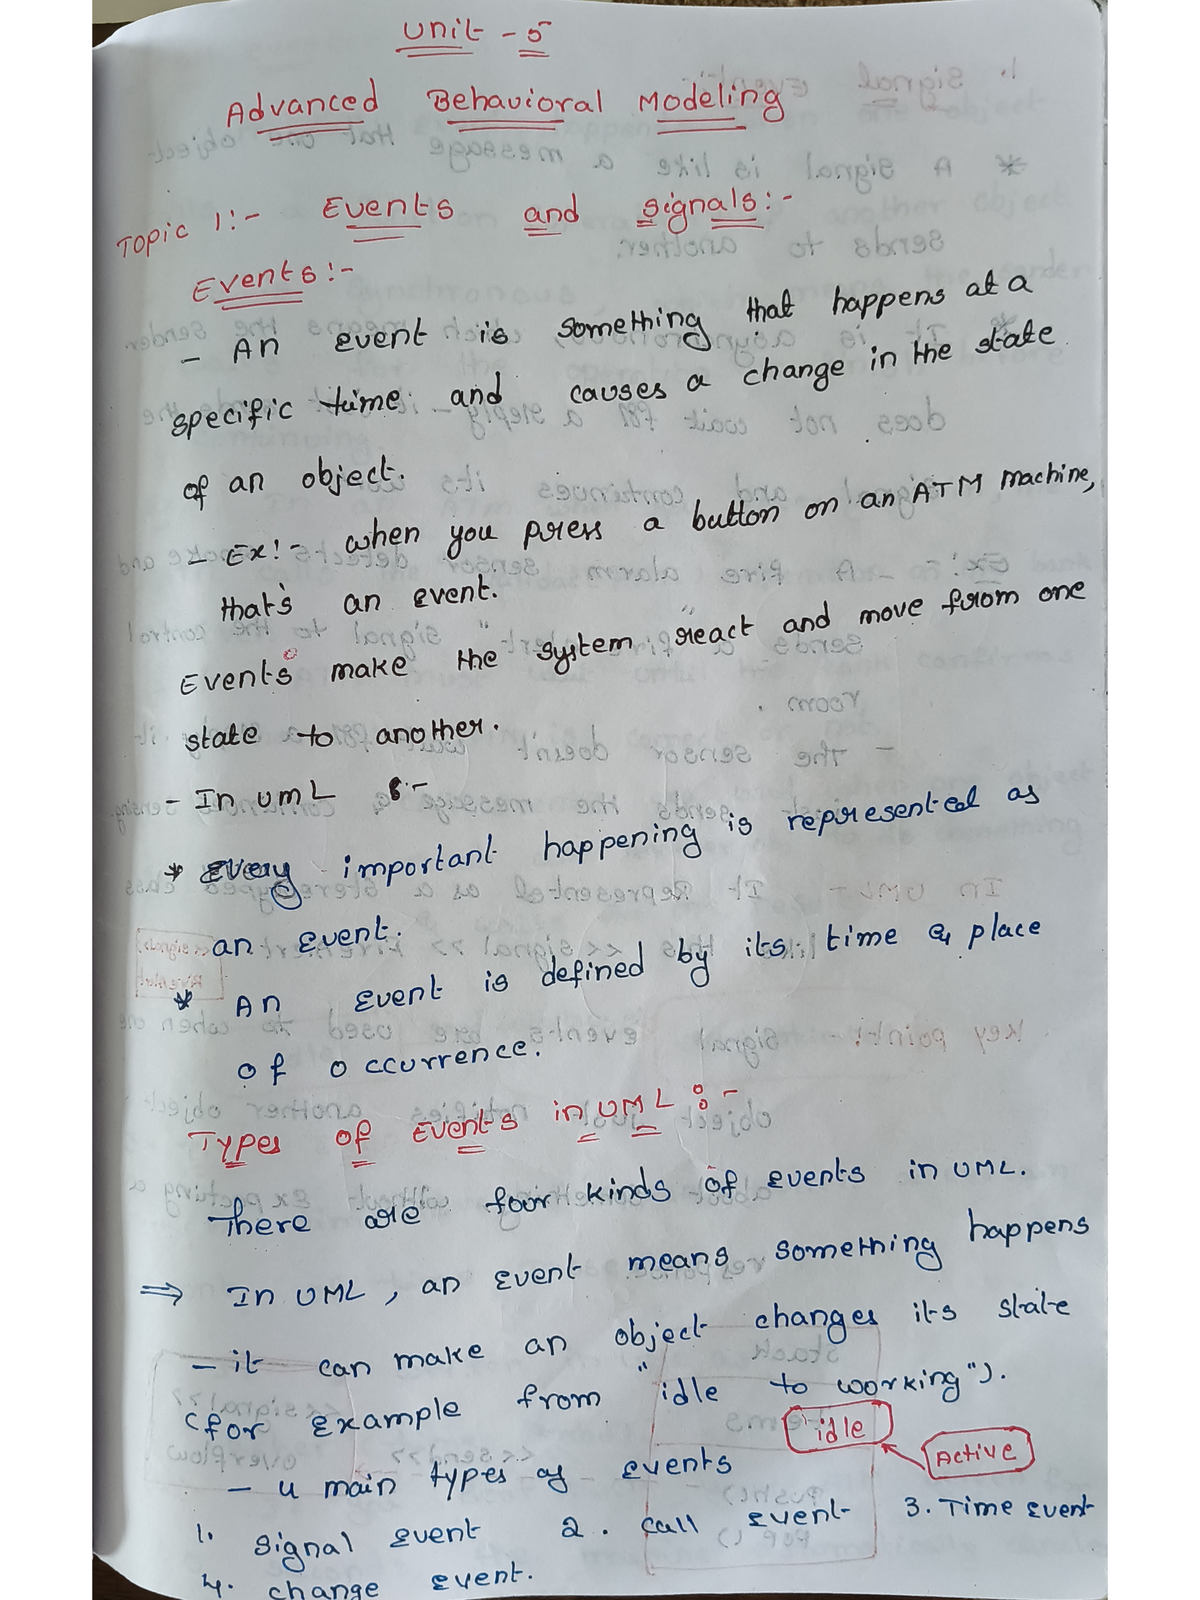 Unit - 5
Advanced Behavioral Modeling
Topic 1:- Events and signals:-
Events:-
- An event is something that happens at a
specific time and causes a change in the state
of an object.
- Ex:- when you press a button on an ATM machine,
that's an event.
Events make the system react and move from one
state to another.
- In UML :-
* Every important happening is represented as
an event.
* An event is defined by its time & place
of occurrence.
Types of Events in UML :-
There are four kinds of events in UML.
⇒ In UML, an event means something happens
- it can make an object changes its state
(for example from "idle to working").
idle
Active
- 4 main types of events
1. signal event 2. call event 3. Time event
4. change event.